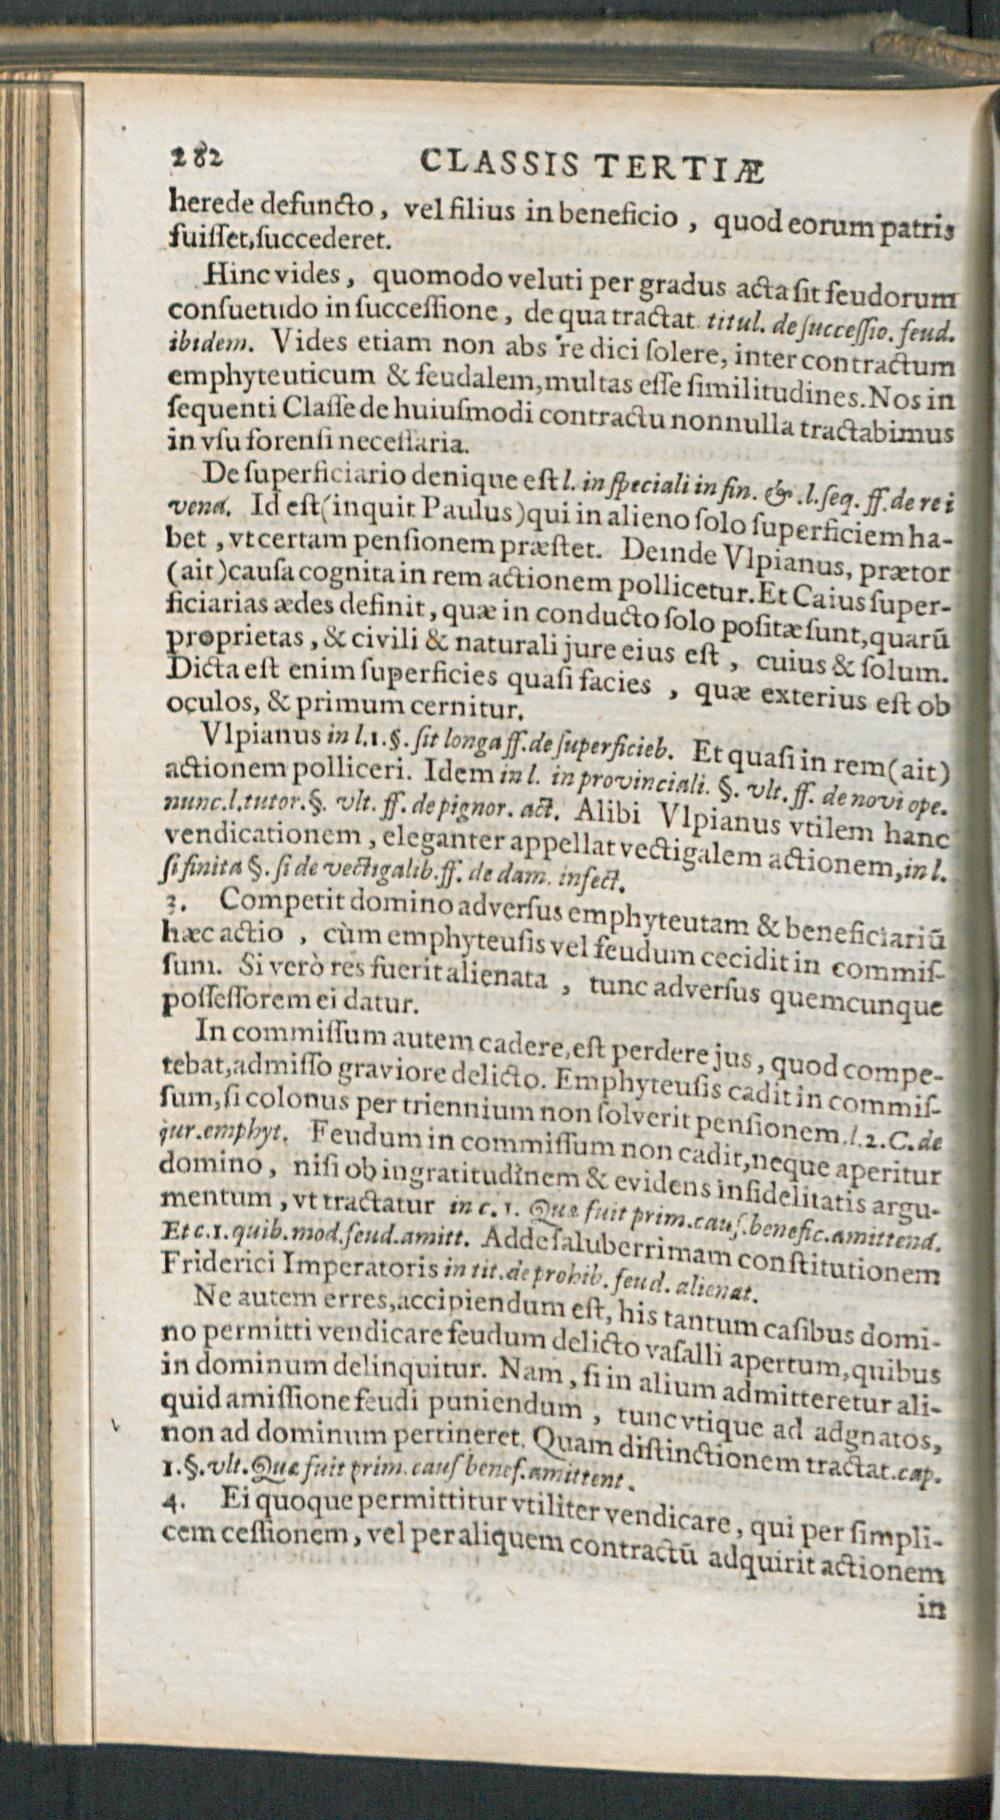 282 CLASSIS TERTIÆ
herede defuncto, vel filius in beneficio, quod eorum patris
fuiſſet, ſuccederet.
Hinc vides, quomodo veluti per gradus acta ſit feudorum
conſuetudo in ſucceſſione, de qua tractat titul. de ſucceſſio. feud.
ibidem. Vides etiam non abs re dici ſolere, inter contractum
emphyteuticum & feudalem, multas eſſe ſimilitudines. Nos in
ſequenti Claſſe de huiuſmodi contractu nonnulla tractabimus
in vſu forenſi neceſſaria.
De ſuperficiario denique eſt l. in ſpeciali in fin. & .l. ſeq. ff. de rei
vend. Id eſt (inquit Paulus) qui in alieno ſolo ſuperficiem ha-
bet, vt certam penſionem præſtet. Deinde Vlpianus, prætor
(ait) cauſa cognita in rem actionem pollicetur. Et Caius ſuper-
ficiarias ædes definit, quæ in conducto ſolo poſitæ ſunt, quarū
proprietas, & civili & naturali jure eius eſt, cuius & ſolum.
Dicta eſt enim ſuperficies quaſi facies, quæ exterius eſt ob
oculos, & primum cernitur.
Vlpianus in l.1.§. ſit longa ff. de ſuperficieb. Et quaſi in rem (ait)
actionem polliceri. Idem in l. in provinciali. §. vlt. ff. de novi ope.
nunc. l. tutor. §. vlt. ff. de pignor. act. Alibi Vlpianus vtilem hanc
vendicationem, eleganter appellat vectigalem actionem, in l.
ſi finita §. ſi de vectigalib. ff. de dam. infect.
3. Competit domino adverſus emphyteutam & beneficiariū
hæc actio, cùm emphyteuſis vel feudum cecidit in commiſ-
ſum. Si verò res fuerit alienata, tunc adverſus quemcunque
poſſeſſorem ei datur.
In commiſſum autem cadere, eſt perdere jus, quod compe-
tebat, admiſſo graviore delicto. Emphyteuſis cadit in commiſ-
ſum, ſi colonus per triennium non ſolverit penſionem. l. 2. C. de
jur. emphyt. Feudum in commiſſum non cadit, neque aperitur
domino, niſi ob ingratitudinem & evidens infidelitatis argu-
mentum, vt tractatur in c. 1. Quæ fuit prim. cauſ. benefic. amittend.
Et c. 1. quib. mod. feud. amitt. Adde ſaluberrimam conſtitutionem
Friderici Imperatoris in tit. de prohib. feud. alienat.
Ne autem erres, accipiendum eſt, his tantum caſibus domi-
no permitti vendicare feudum delicto vaſalli apertum, quibus
in dominum delinquitur. Nam, ſi in alium admitteretur ali-
quid amiſſione feudi puniendum, tunc vtique ad adgnatos,
non ad dominum pertineret. Quam diſtinctionem tractat. cap.
1. §. vlt. Quæ fuit prim. cauſ benef. amittent.
4. Ei quoque permittitur vtiliter vendicare, qui per ſimpli-
cem ceſſionem, vel per aliquem contractū adquirit actionem
in